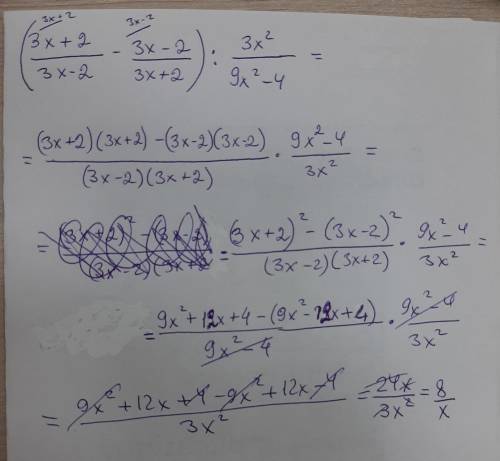 3x+2 3x-2
((3x+2)/(3x-2) - (3x-2)/(3x+2)) : 3x²/(9x²-4) =
= ((3x+2)(3x+2) - (3x-2)(3x-2))/((3x-2)(3x+2)) · (9x²-4)/3x² =
= ((3x+2)² - (3x-2)²)/((3x-2)(3x+2)) · (9x²-4)/3x² =
= (9x²+12x+4 - (9x²-12x+4))/(9x²-4) · (9x²-4)/3x²
= (9x²+12x+4-9x²+12x-4)/3x² = 24x/3x² = 8/x